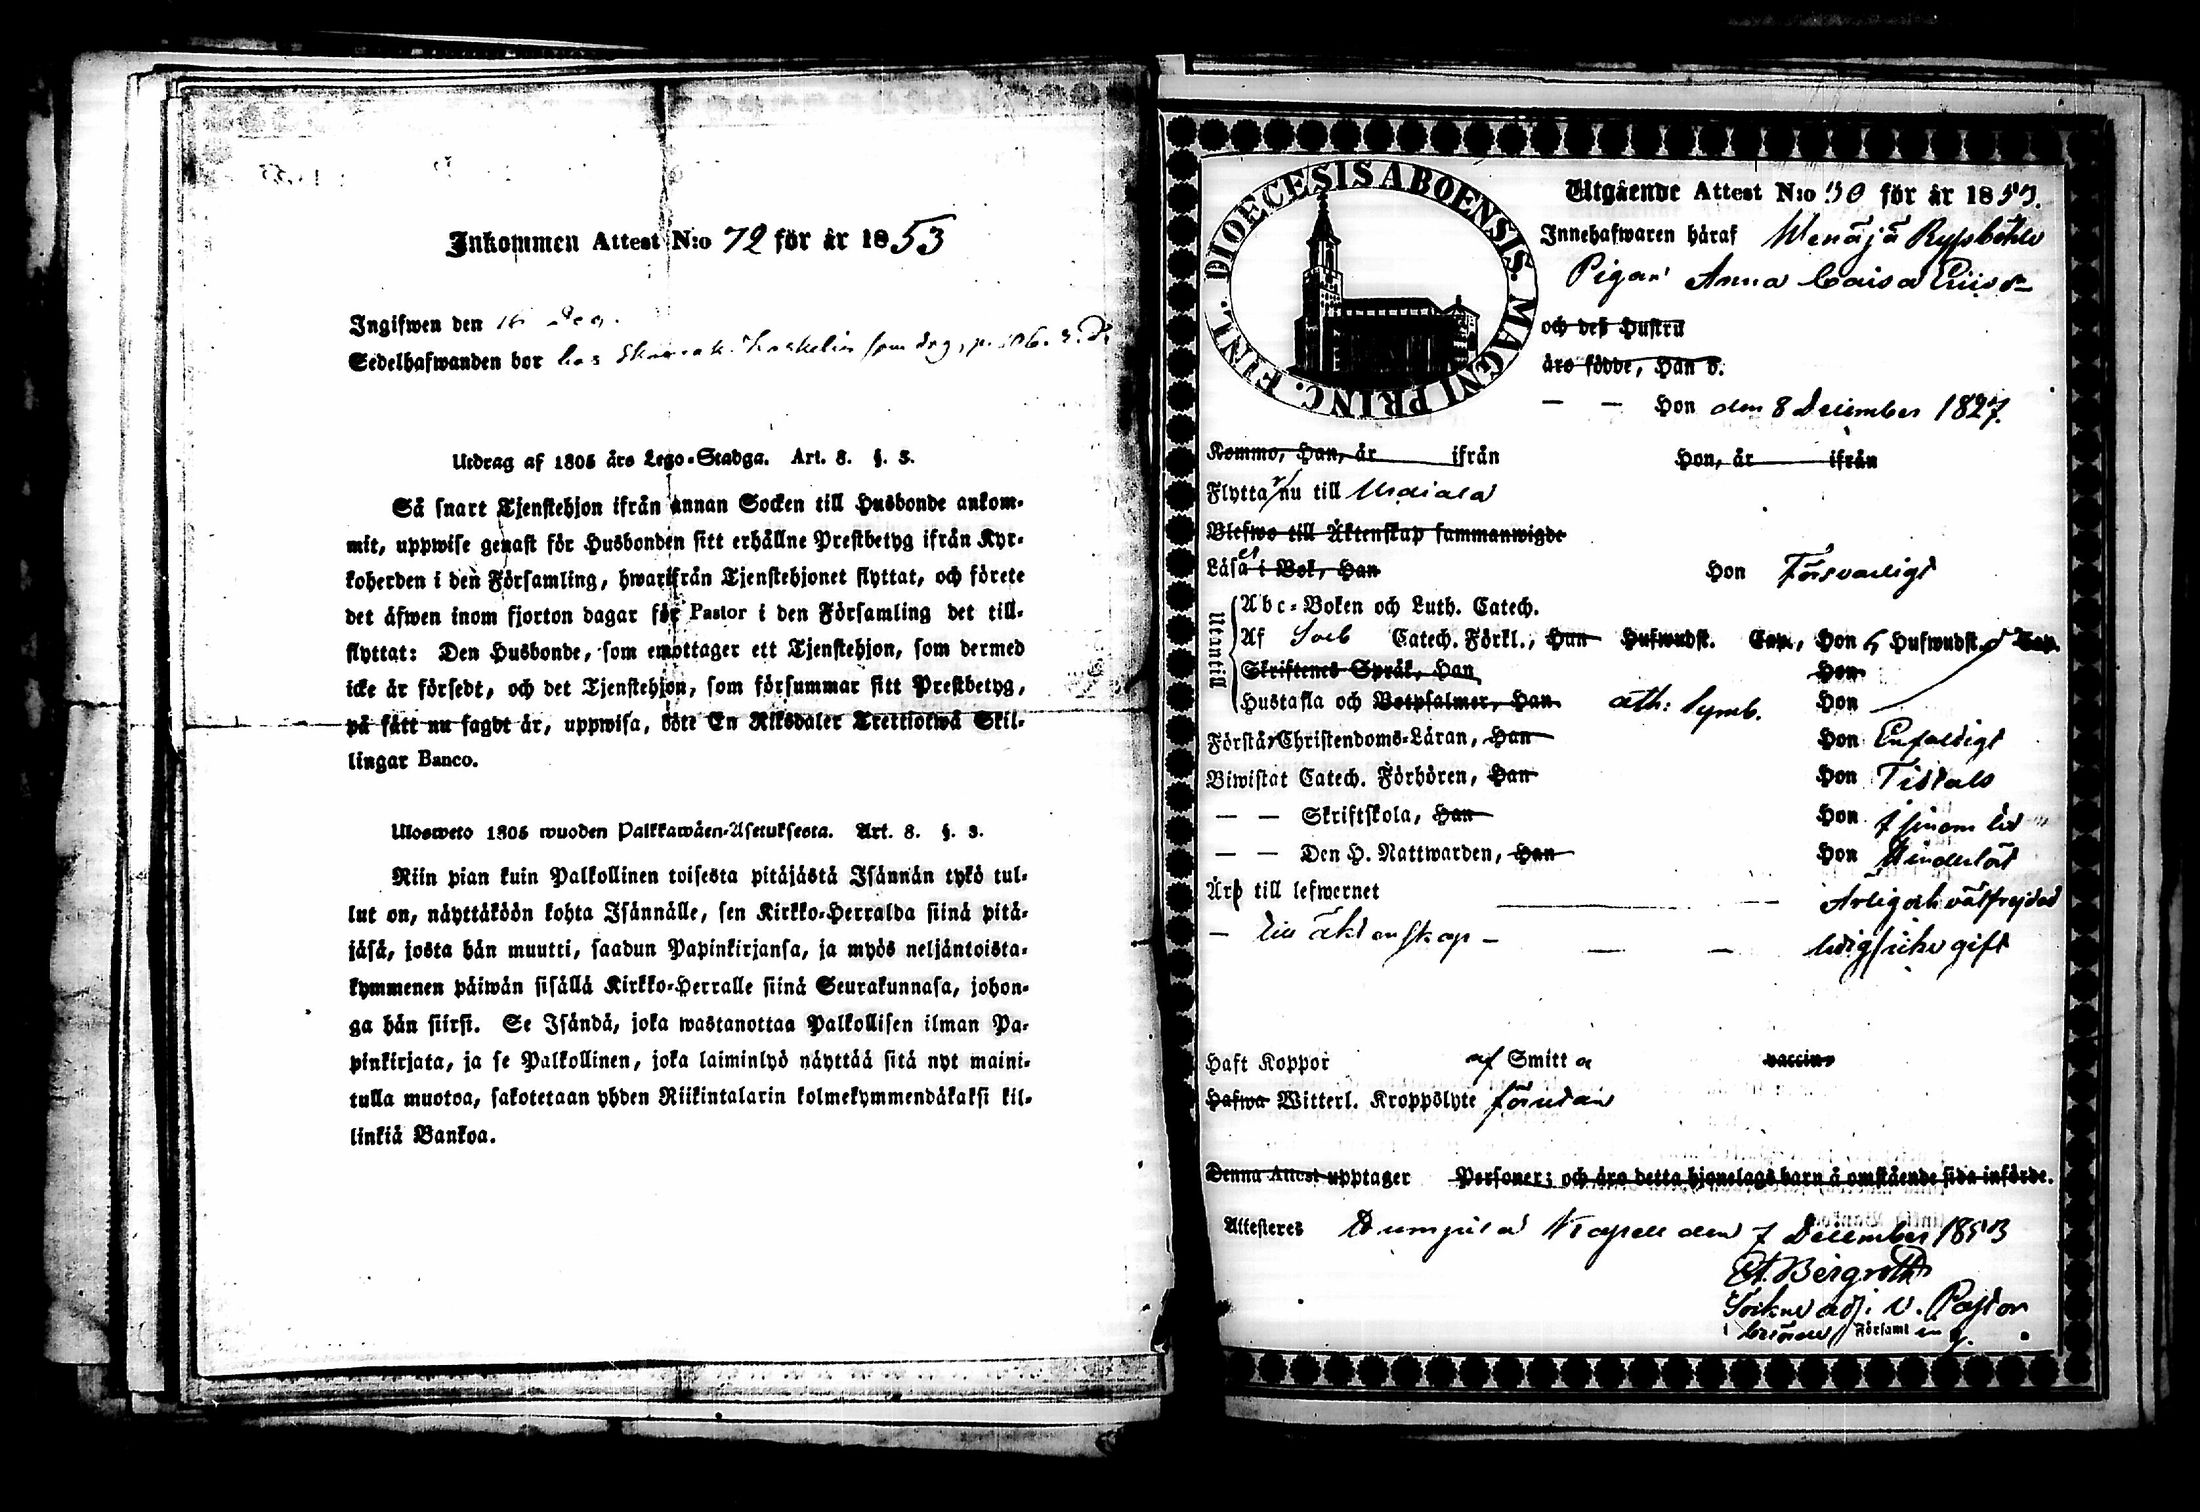 Inkommen Attest N:o 72 för år 1853
Ingifwen den 16 Dec.
Sedelhafwanden bor hos
Utdrag af 1805 års Lego-Stadga. Art. 8. §. 3.
Så snart Tjenstehjon ifrån annan Socken till Husbonde ankom-
mit, uppwise genast för Husbonden sitt erhållne Prestbetyg ifrån Kyr-
koherden i den Församling, hwarifrån Tjenstehjonet flyttat, och förete
det äfwen inom fjorton dagar för Pastor i den Församling det till-
flyttat: Den Husbonde, som emottager ett Tjenstehjon, som dermed
icke är försedt, och det Tjenstehjon, som försummar sitt Prestbetyg,
på sätt nu sagdt är, uppwisa, böte En Riksdaler Trettiotwå Skil-
lingar Banco.
Ulosweto 1805 wuoden Palkkawäen-Asetuksesta. Art. 8. §. 3.
Niin pian kuin Palkollinen toisesta pitäjästä Isännän tykö tul-
lut on, näyttäköön kohta Isännälle, sen Kirkko-Herralda siinä pitä-
jäsä, josta hän muutti, saadun Papinkirjansa, ja myös neljäntoista-
kymmenen päiwän sisällä Kirkko-Herralle siinä Seurakunnasa, johon-
ga hän siirsi. Se Isändä, joka wastanottaa Palkollisen ilman Pa-
pinkirjata, ja se Palkollinen, joka laiminlyö näyttää sitä nyt maini-
tulla muotoa, sakotetaan yhden Riikintalarin kolmekymmendäkaksi kil-
linkiä Bankoa.
DIOECESIS ABOENSIS. MAGNI PRINC. FINL.
Utgående Attest N:o 30 för år 1853.
Innehafwaren häraf
Pigan Anna Caisa
och deß Hustru
äro födde, Han d.
— — Hon den 8 December 1827.
Kommo, Han, år ifrån Hon, år ifrån
Flyttar nu till Urdiala
Blefwo till Äktenskap sammanwigde
Läsa i Bok, Han Hon Försvarligt
Utantill
Abc-Boken och Luth. Catech.
Af Soeb Catech. Förkl., Han Hufwudst. Cap., Hon 5 Hufwudst. Cap.
Skriftenes Språk, Han Hon
Hustafla och Botpsalmer, Han ath: Symb. Hon
Förstår Christendoms-Läran, Han Hon Enfaldigt
Biwistat Catech. Förhören, Han Hon
— — Skriftskola, Han Hon
— — Den H. Nattwarden, Han Hon
Är till lefwernet Ärlig och välfrejdad
— Till äktenskap — — — ledig
Haft Koppor af Smitta vaccine
Hafwa Witterl. Kroppslyte förutan
Denna Attest upptager Personer; och äro detta hjonelags barn å omstående sida införde.
Attesteres Kumpila Kapell den 7 December 1853
Bergroth
adj. v. Pastor
i Församl